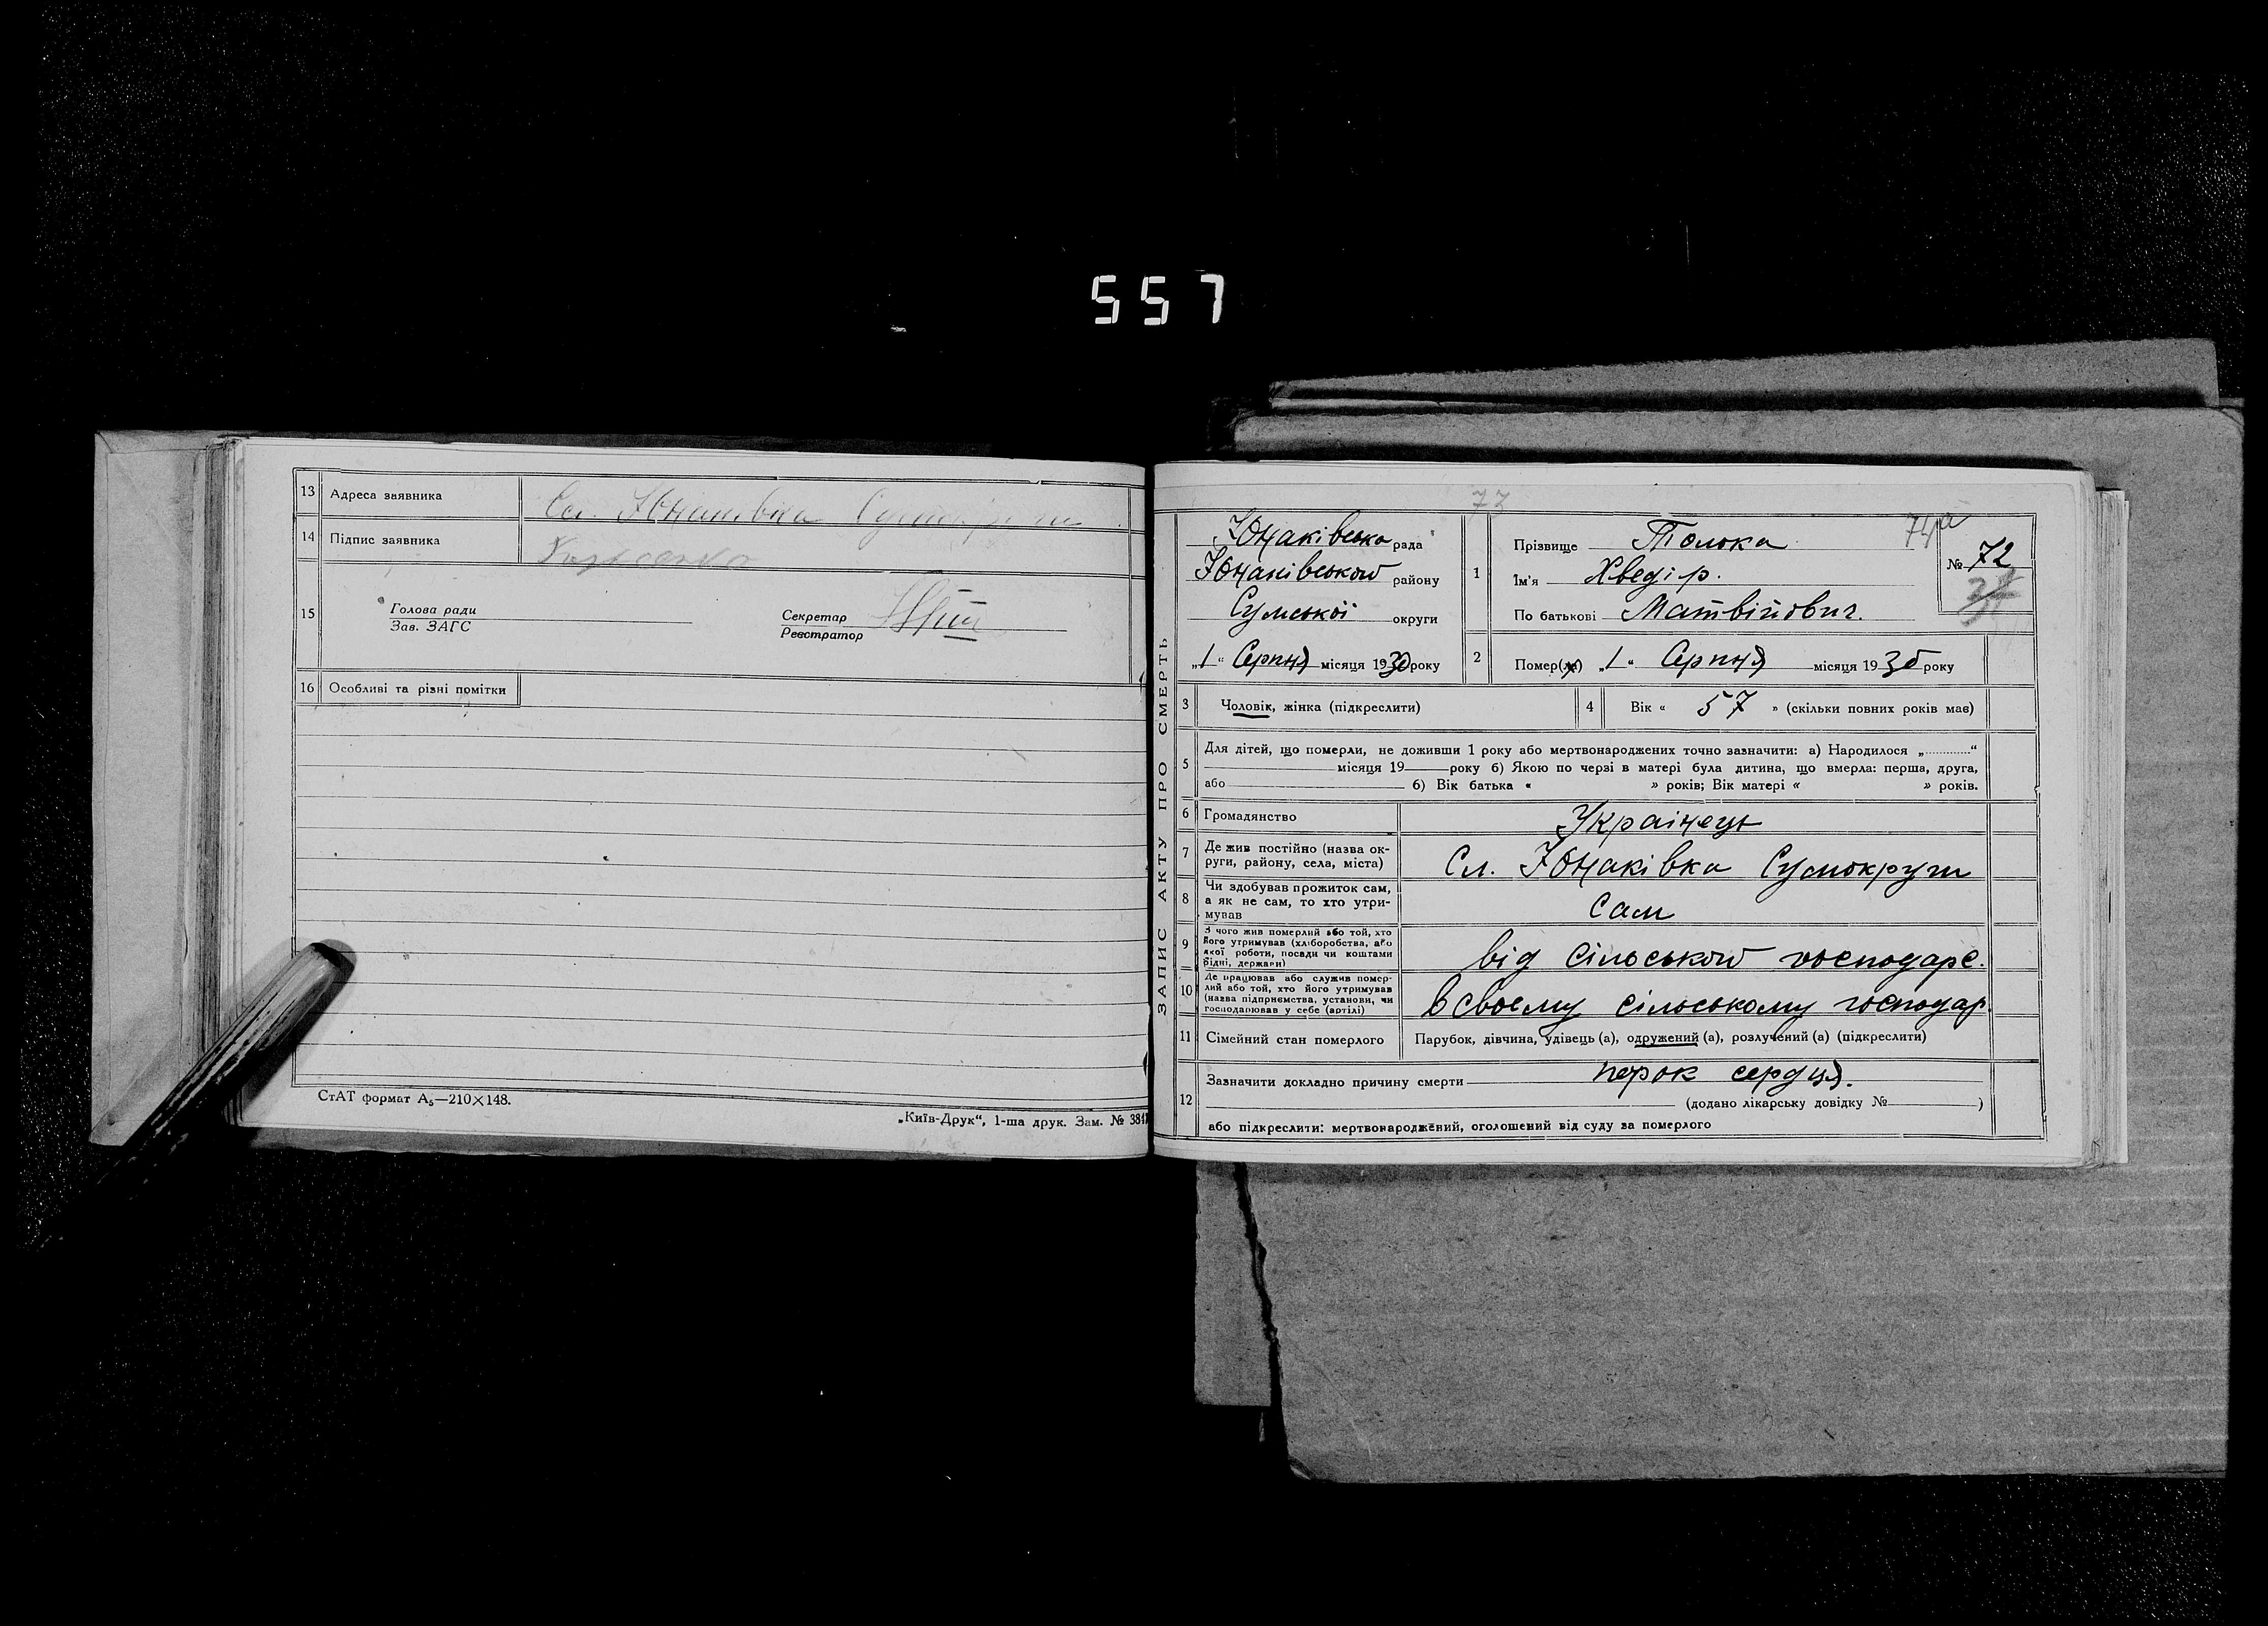 557
13 Адреса заявника Сл. Юнаківка Сумокруги
14 Підпис заявника
15 Голова ради
Зав. ЗАГС
Секретар
Реєстратор
16 Особливі та різні помітки
СтАТ формат А₅—210×148.
„Київ-Друк“, 1-ша друк. Зам. № 384
ЗАПИС АКТУ ПРО СМЕРТЬ
77
Юнаківська рада
Юнаківського району
Сумської округи
„1“ Серпня місяця 1930 року
1 Прізвище Толока
Ім'я Хведір.
По батькові Матвійович.
74а
№ 72
2 Помер(ла) „1“ Серпня місяця 1930 року
3 Чоловік, жінка (підкреслити)
4 Вік « 57 » (скільки повних років має)
5 Для дітей, що померли, не доживши 1 року або мертвонароджених точно зазначити: а) Народилося „............“
місяця 19 року б) Якою по черзі в матері була дитина, що вмерла: перша, друга,
або б) Вік батька « » років; Вік матері « » років.
6 Громадянство Українець
7 Де жив постійно (назва ок-
руги, району, села, міста) Сл. Юнаківка Сумокруги
8 Чи здобував прожиток сам,
а як не сам, то хто утри-
мував Сам
9 З чого жив померлий або той, хто
його утримував (хліборобства, або
якої роботи, посади чи коштами
рідні, держави) від сільського господарс.
10 Де працював або служив помер-
лий або той, хто його утримував
(назва підприємства, установи, чи
господарював у себе (артілі) в своєму сільському господар.
11 Сімейний стан померлого Парубок, дівчина, удівець (а), одружений (а), розлучений (а) (підкреслити)
12 Зазначити докладно причину смерти порок серця.
(додано лікарську довідку № )
або підкреслити: мертвонароджений, оголошений від суду за померлого